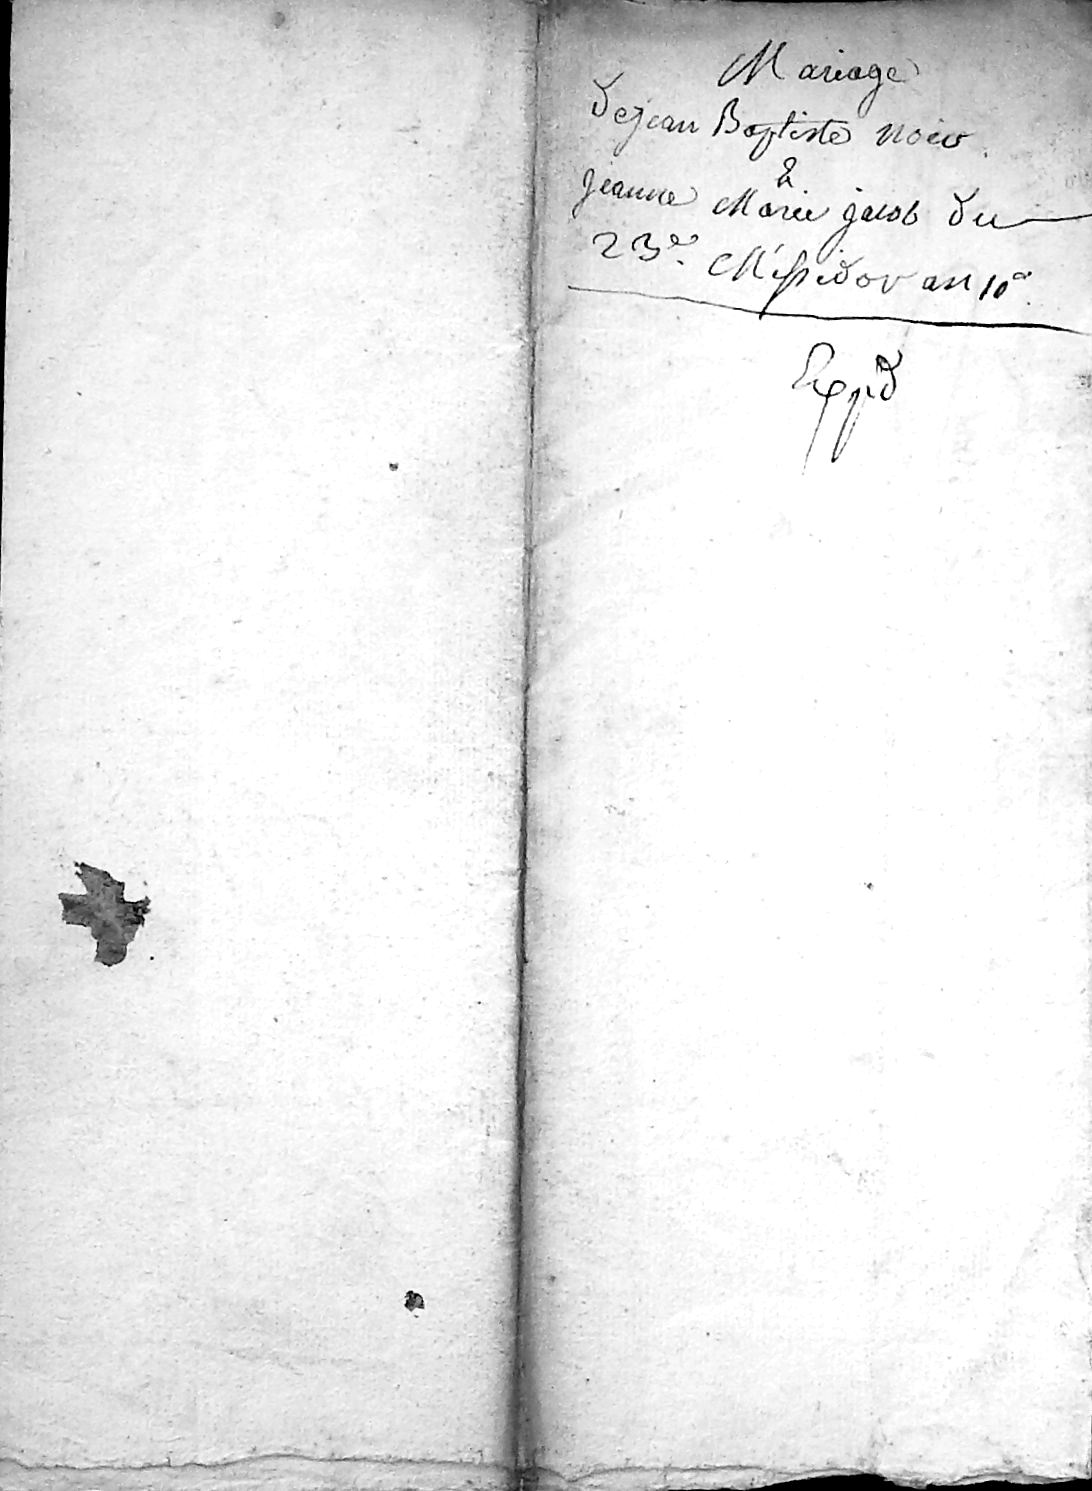 Mariage
de jean Baptiste noir
&
jeanne Marie jacob du
23e. Messidor an 10e.
Expd